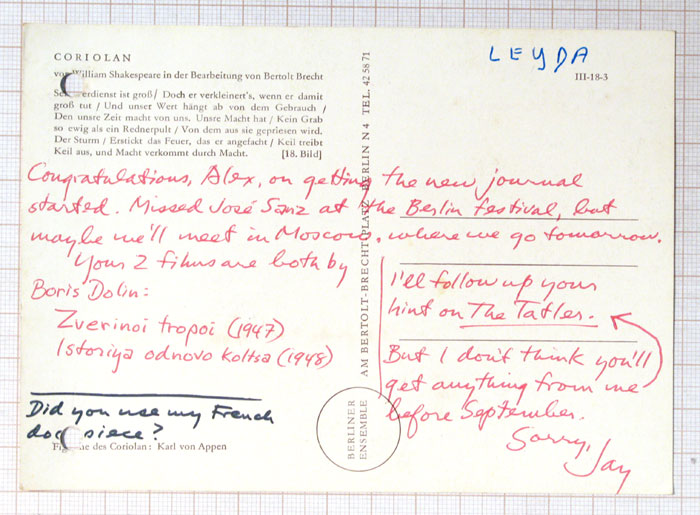 LEYDA
CORIOLAN
von William Shakespeare in der Bearbeitung von Bertolt Brecht
III-18-3
erdienst ist groß/ Doch er verkleinert's, wenn er damit
groß tut / Und unser Wert hängt ab von dem Gebrauch /
Den unsre Zeit macht von uns. Unsre Macht hat / Kein Grab
so ewig als ein Rednerpult / Von dem aus sie gepriesen wird.
Der Sturm / Erstickt das Feuer, das er angefacht / Keil treibt
Keil aus, und Macht verkommt durch Macht. [18. Bild]
Congratulations, Alex, on getting the new journal
started. Missed José Sanz at the Berlin festival, but
maybe we'll meet in Moscow, where we go tomorrow.
Your 2 films are both by
Boris Dolin:
Zverinoi tropoi (1947)
Istoriya odnovo koltsa (1948)
I'll follow up your
hint on The Tatler.
But I don't think you'll
get anything from me
before September.
Sorry,
Jay
Did you use my French
doc piece?
des Coriolan: Karl von Appen
BERLINER
ENSEMBLE
AM BERTOLT-BRECHT-PLATZ BERLIN N4 TEL. 42 58 71